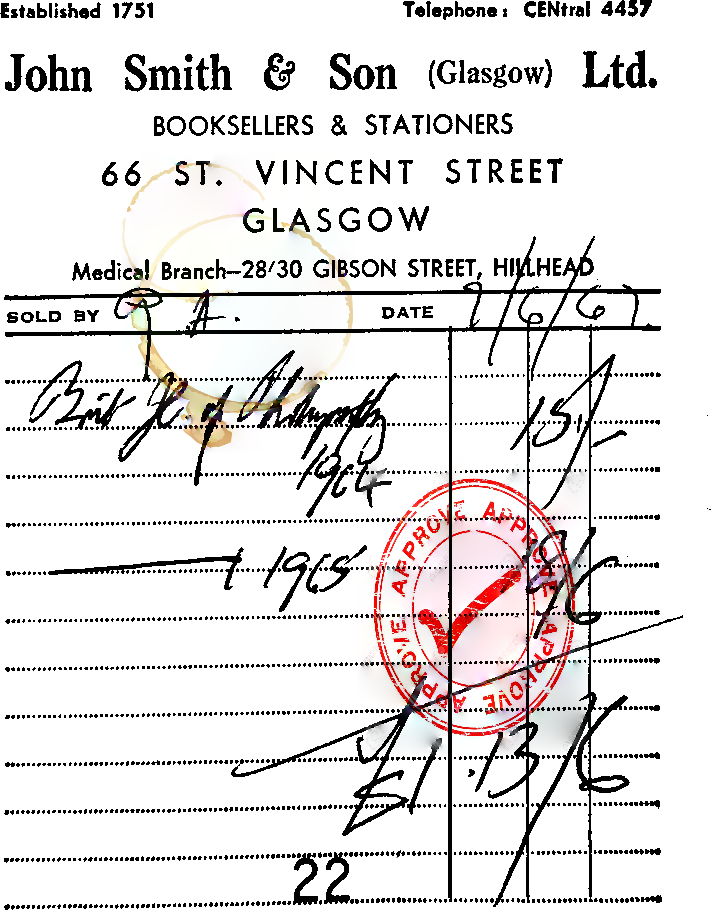 Established 1751 Telephone: CENtral 4457
John Smith & Son (Glasgow) Ltd.
BOOKSELLERS & STATIONERS
66 ST. VINCENT STREET
GLASGOW
Medical Branch—28/30 GIBSON STREET, HILLHEAD
SOLD BY P.A. DATE 9/6/67.
Brit Jl. of 15/-
1964
1965 18/6
APPROVE APPROVE APPROVE APPROVE APPROVE APPROVE
£1.13/6
22